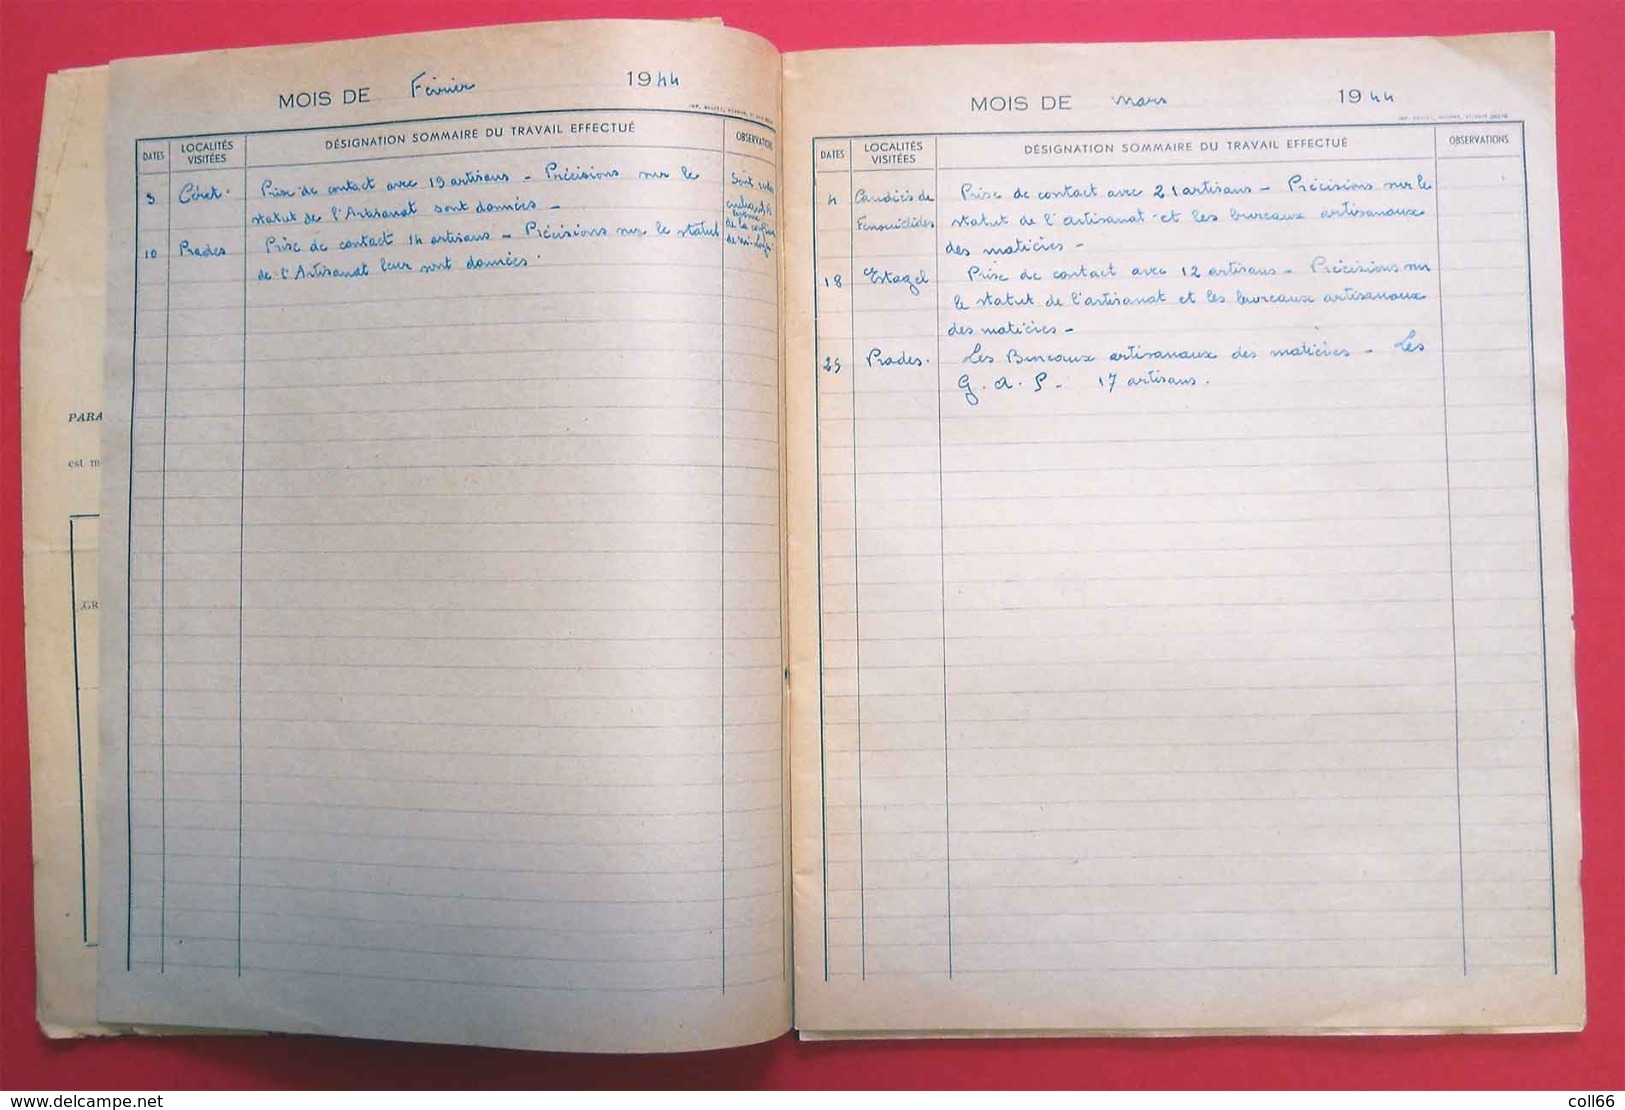 MOIS DE Février 1944
DATES
LOCALITÉS
VISITÉES
DÉSIGNATION SOMMAIRE DU TRAVAIL EFFECTUÉ
OBSERVATIONS
3 Céret. Prise de contact avec 19 artisans - Précisions sur le
statut de l'Artisanat sont données -
10 Prades Prise de contact 14 artisans - Précisions sur le statut
de l'Artisanat leur sont données.
Sont
de la
MOIS DE mars 1944
DATES
LOCALITÉS
VISITÉES
DÉSIGNATION SOMMAIRE DU TRAVAIL EFFECTUÉ
OBSERVATIONS
4 Caudiès de Prise de contact avec 21 artisans - Précisions sur le
Fenouillèdes statut de l'artisanat et les bureaux artisanaux
des matières -
18 Estagel Prise de contact avec 12 artisans - Précisions sur
le statut de l'artisanat et les bureaux artisanaux
des matières -
25 Prades. Les Bureaux artisanaux des matières - Les
G. A. P - 17 artisans.
PARA
est m
GR
delcampe.com
coll66